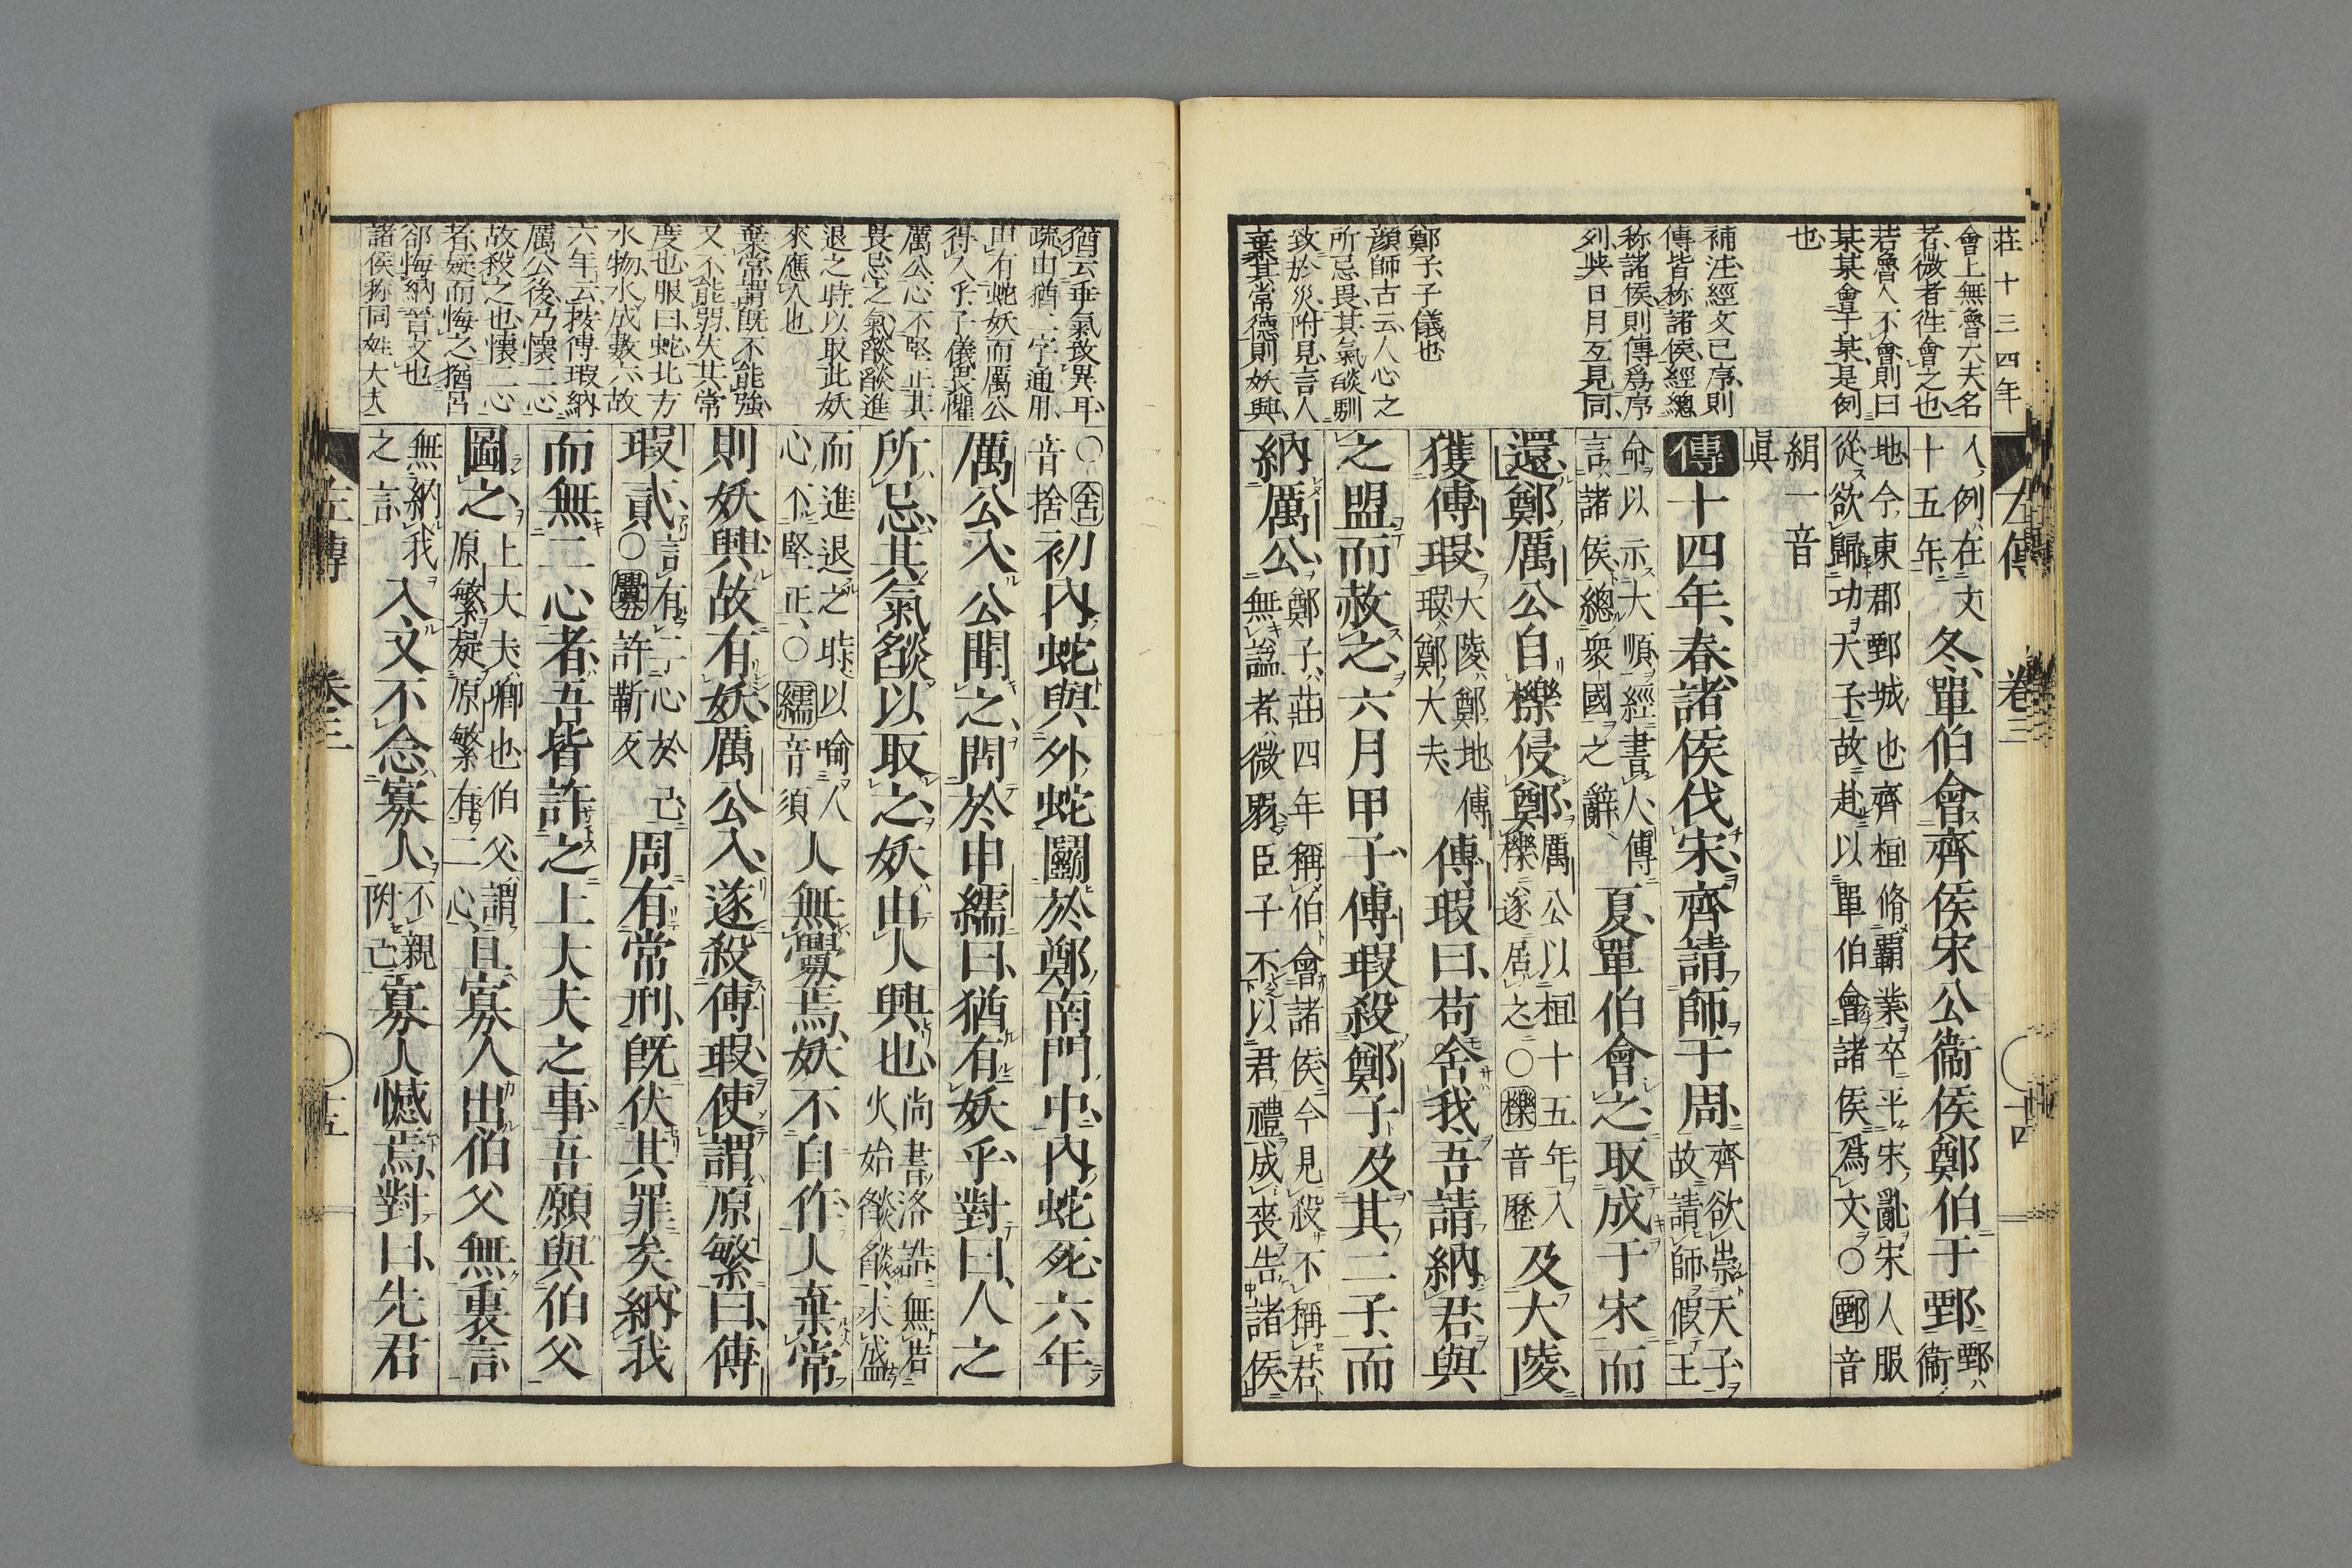 莊十三四年
會上無魯大夫名
者微者徃會之也
若魯人不會則曰
某某會于某是例
也
補注經文已序則
傳皆称諸侯經總
称諸侯則傳爲序
列共日月互見同
鄭子子儀也
顔師古云人心之
所忌畏其氣燄馴
致於災附見言人
棄其常德則妖興
左傳 卷三 十四
人例在文
十五年
冬單伯會齊侯宋公衞侯鄭伯于鄄
鄄衞
地今東郡鄄城也齊桓脩霸業卒平宋亂宋人服
從欲歸功天子故赴以單伯會諸侯爲文○鄄音
絹一音
眞
傳十四年春諸侯伐宋齊請師于周
齊欲崇天子
故請師假王
命以示大順經書人傳
言諸侯總衆國之辭
夏單伯會之取成于宋而
還鄭厲公自櫟侵鄭
厲公以桓十五年入
櫟遂居之○櫟音歷
及大陵
獲傅瑕
大陵鄭地傅
瑕鄭大夫
傅瑕曰苟舍我吾請納君與
之盟而赦之六月甲子傅瑕殺鄭子及其二子而
納厲公
鄭子莊四年稱伯會諸侯今見殺不稱君
無謚者微弱臣子不以君禮成喪告諸侯
猶云垂氣致異耳
疏由猶二字通用
由有蛇妖而厲公
得入乎子儀畏懼
厲公心不堅正其
畏忌之氣燄燄進
退之時以取此妖
來應人也
棄常謂既不能強
又不能弱失其常
度也服曰蛇北方
水物水成數六故
六年云按傅瑕納
厲公後乃懷二心
故殺之也懷二心
者疑而悔之猶呂
郤悔納晉文也
諸侯称同姓大夫
○舍
音捨
初內蛇與外蛇鬭於鄭南門中內蛇死六年
厲公入公聞之問於申繻曰猶有妖乎對曰人之
所忌其氣燄以取之妖由人興也
尚書洛誥無若
火始燄燄未盛
而進退之時以喻人
心不堅正○繻音須
人無釁焉妖不自作人棄常
則妖興故有妖厲公入遂殺傅瑕使謂原繁曰傅
瑕貳
言有二心於己
○釁許靳反
周有常刑既伏其罪矣納我
而無二心者吾皆許之上大夫之事吾願與伯父
圖之
上大夫卿也伯父謂
原繁疑原繁有二心
且寡人出伯父無裏言
無納我
之言
入又不念寡人
不親
附己
寡人憾焉對曰先君
左傳 卷三 十五